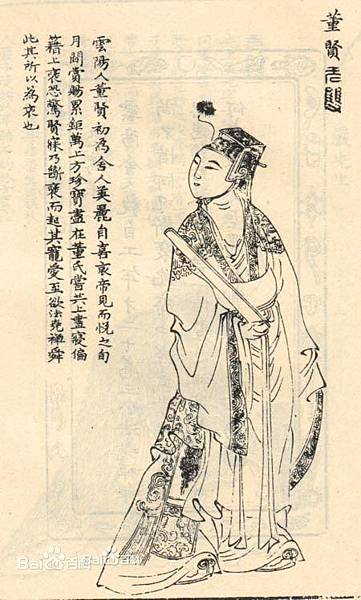 董賢雙
雲陽人董賢初為舍人美麗自喜哀帝見而悅之旬
月間賞賜累鉅萬上方珍寶盡在董氏嘗共上晝寢偏
籍上褎恐驚賢寐乃斷褎而起其寵愛至欲法堯禪舜
此其所以為哀也
Bai百科
Bai百科